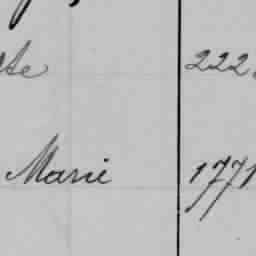 222
Marie 1771